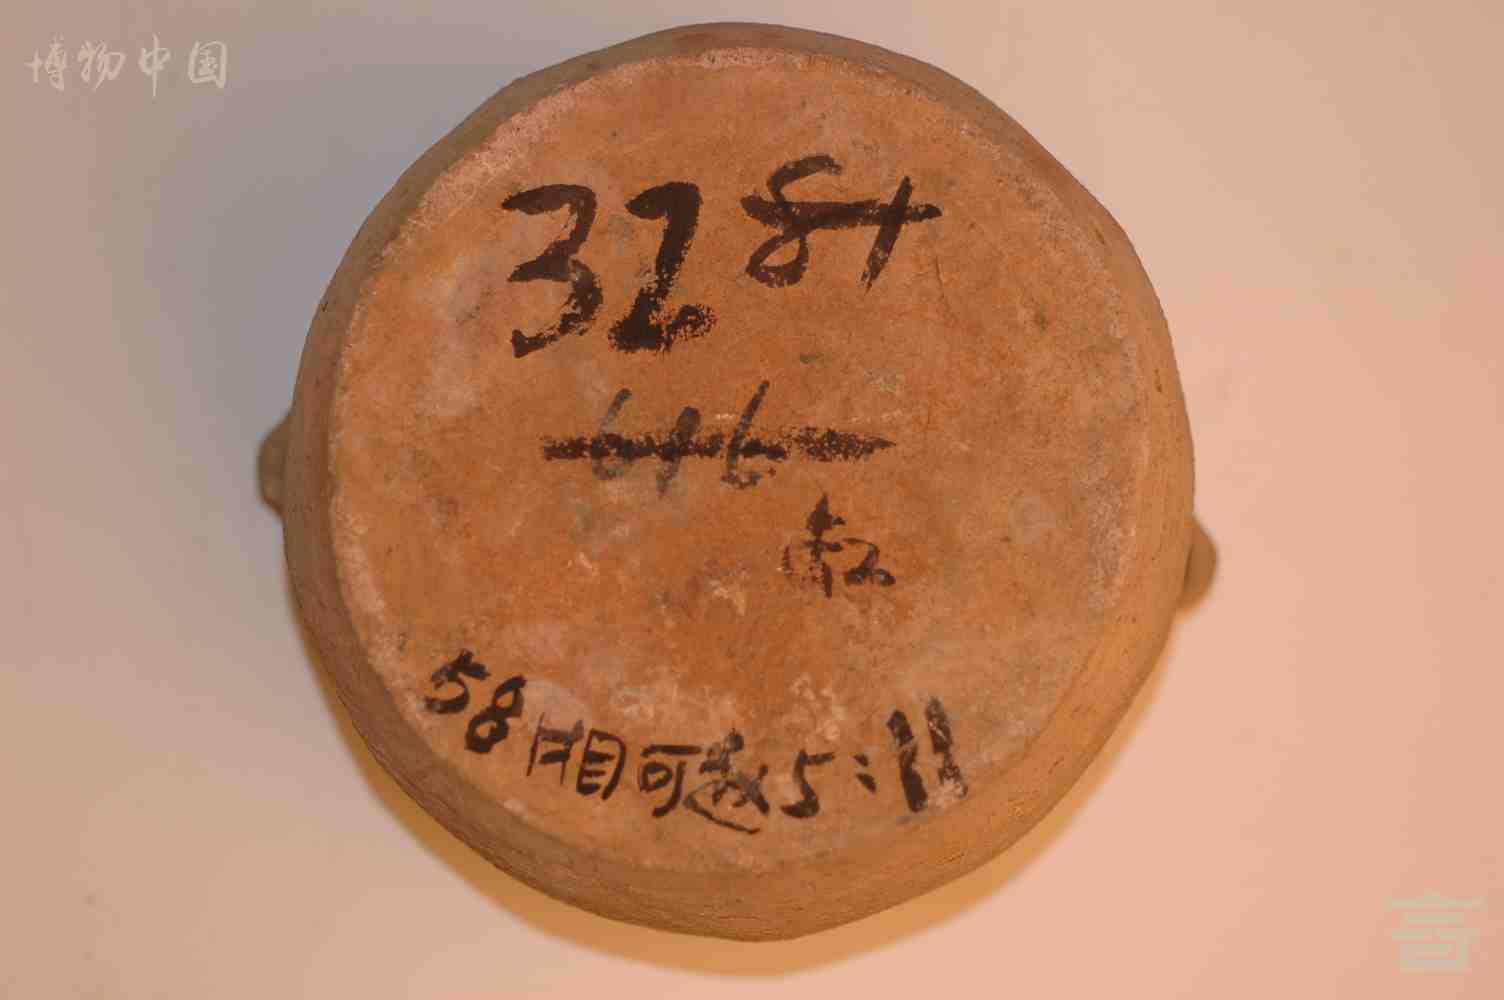 博物中国
32 81
616
58 相可赵5:11